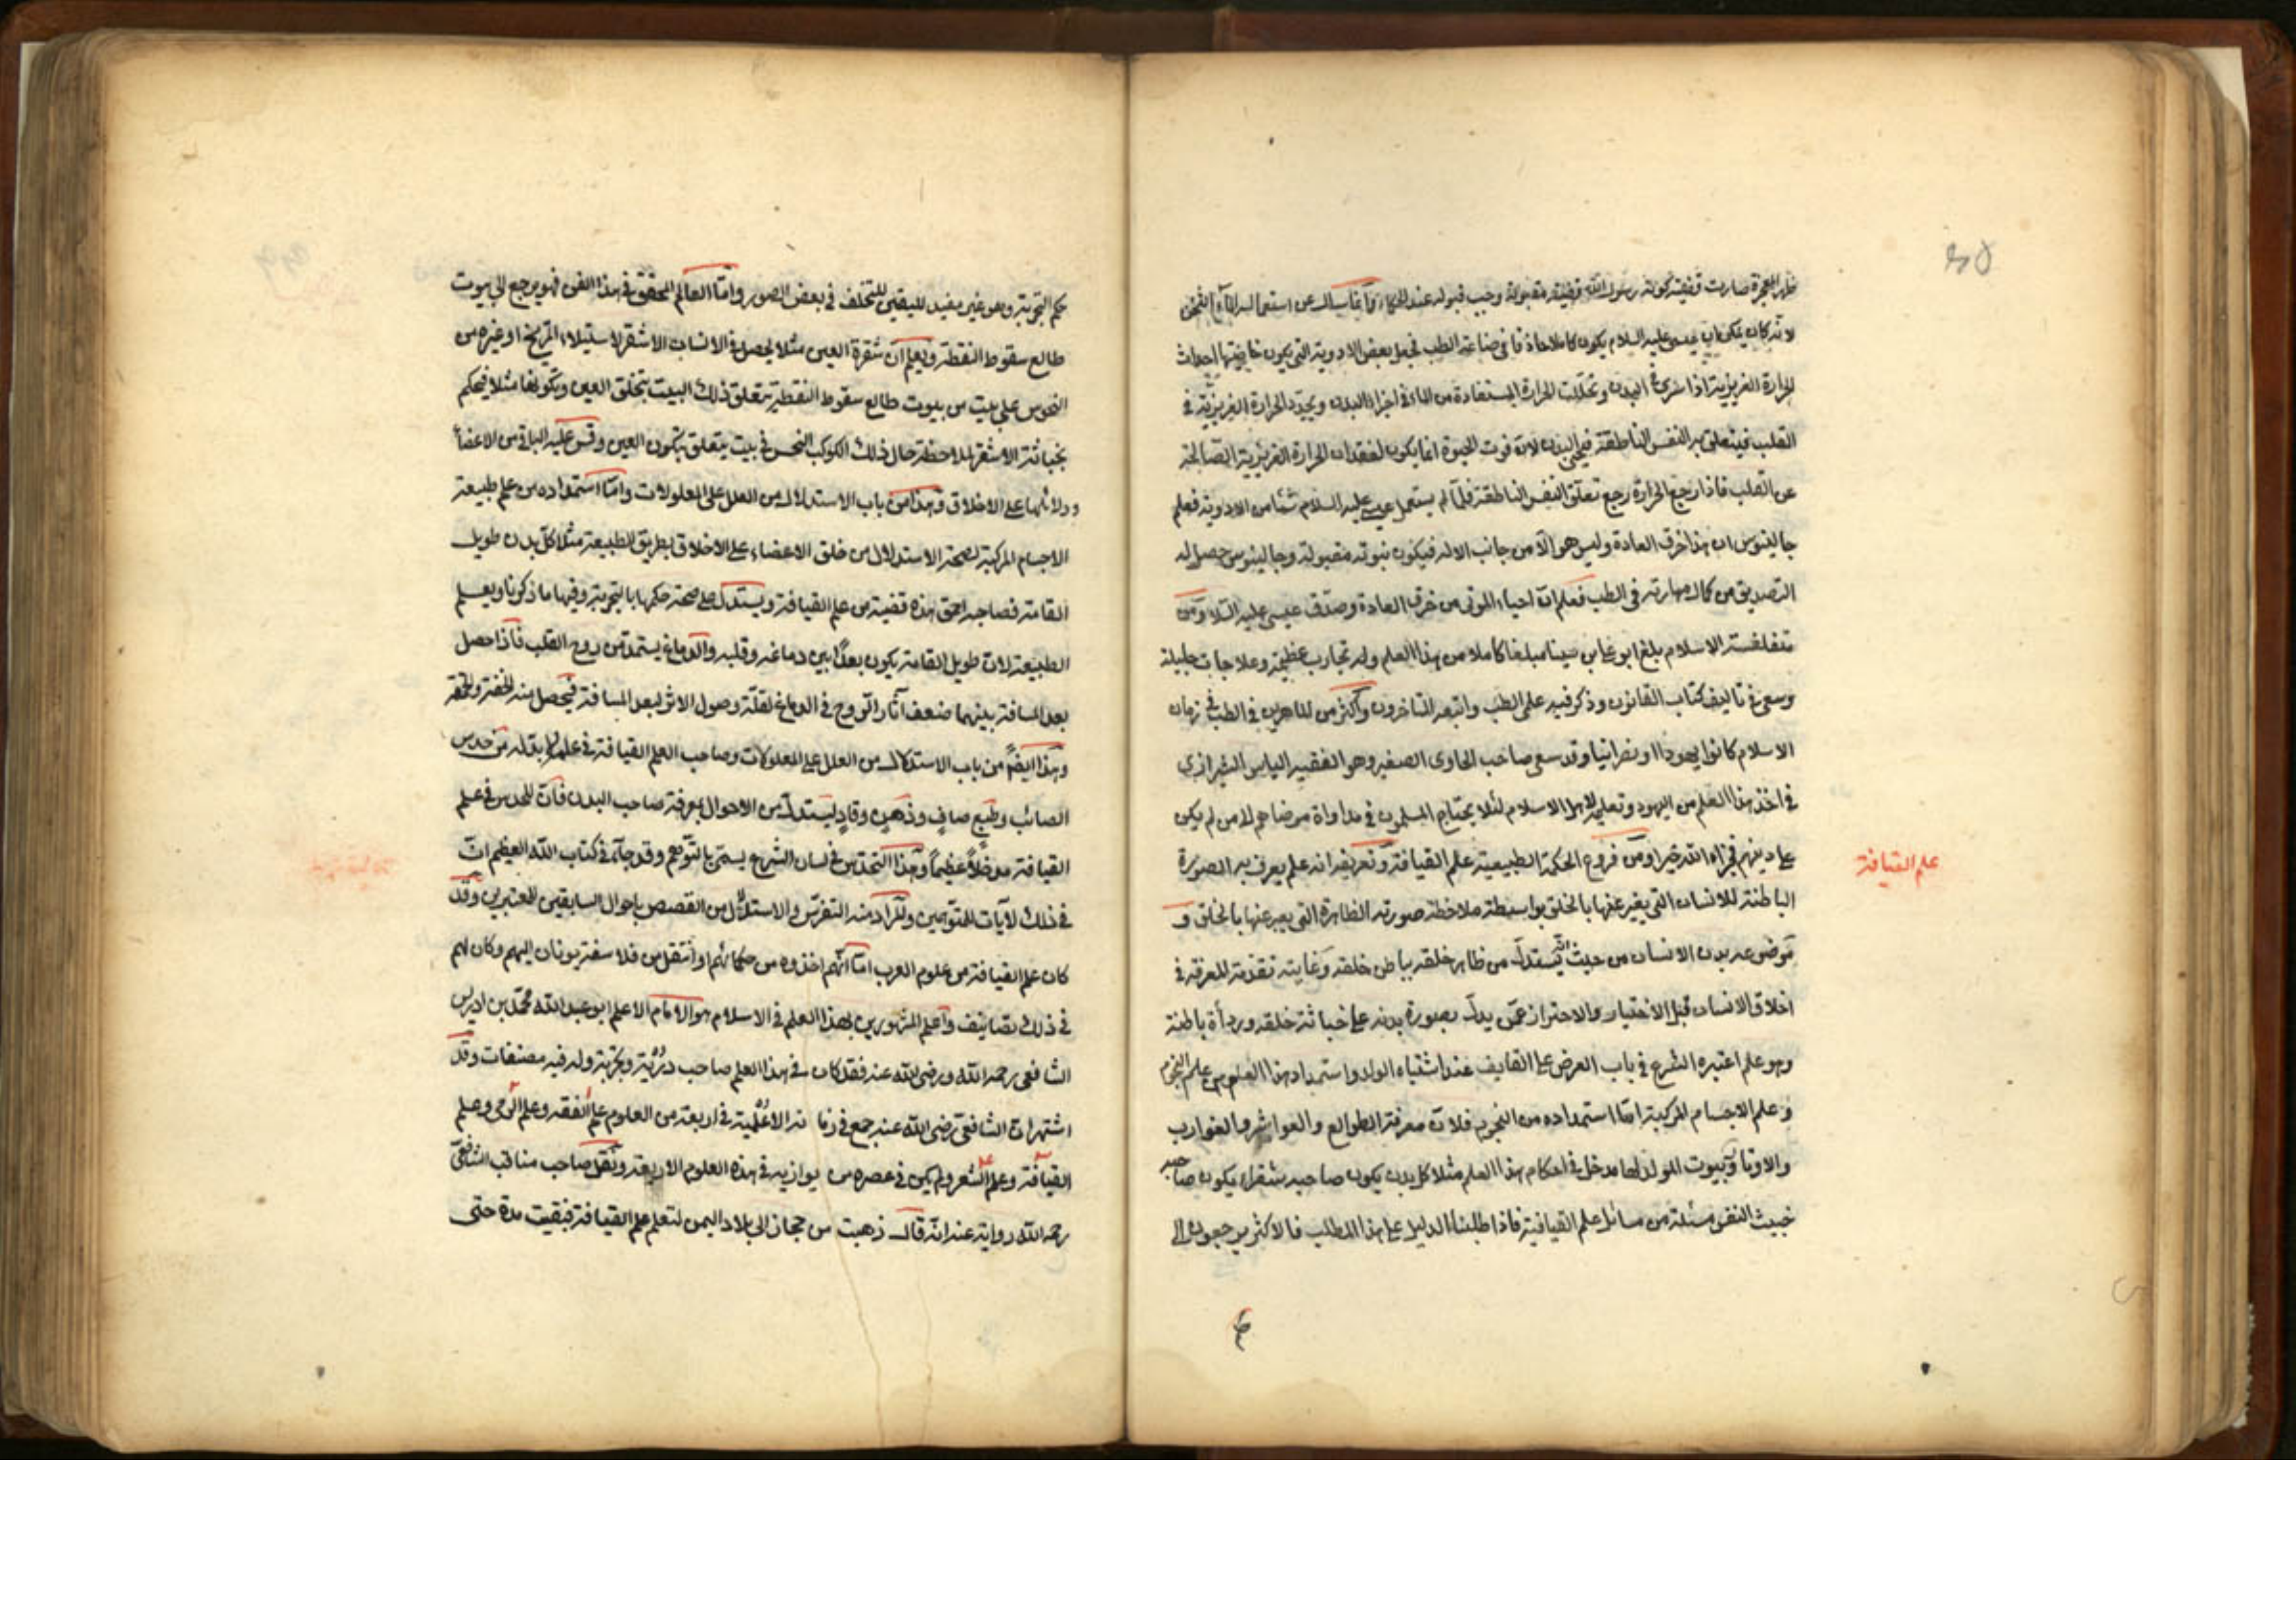 ظهر المعجزة صارت قضية كونه رسول الله قضية مقبولة وجب قبوله عند الحكماء وانما سأل عن استعماله الماء المسخن
لانه كان يمكن ان عيسى عليه السلام يكون كاملا حاذقا في صناعة الطب فجعل بعض الادوية التي يكون خاصيتها احداث
الحرارة الغريزية اذا سرى في البدن وتخللت الحرارة المستفادة من الماء في اجزاء البدن ويجدد الحرارة الغريزية في
القلب فيتعلق به النفس الناطقة فيحيى البدن لان فوت الحيوة انما يكون لفقدان الحرارة الغريزية الصالحة
عن القلب فاذا رجع الحرارة رجع تعلق النفس الناطقة فلما لم يستعمل عيسى عليه السلام شئا من الادوية فعلم
جالينوس ان هذا خرق العادة وليس هو الا من جانب الاله فيكون نبوته مقبولة وجالينوس حصل له
التصديق من كمال مهارته في الطب فعلم ان احياء الموتى من خرق العادة وصدق عيسى عليه السلام ومن
متفلسفة الاسلام بلغ ابو على بن سينا مبلغا كاملا من هذا العلم وله تجارب عظيمة وعلاجات جليلة
وسعى في تاليف كتاب القانون وذكر فيه علم الطب واتبعه المتاخرون واكثر من الماهرين في الطب في زمان
الاسلام كانوا يهوديا او نصرانيا وقد سعى صاحب الحاوى الصغير وهو الفقيه الياس الشيرازى
في اخذ هذا العلم من اليهود وتعليمه لاهل الاسلام لئلا يحتاج المسلمون في مداواة مرضاهم الا من لم يكن
على دينهم فجزاه الله خيرا ومن فروع الحكمة الطبيعية علم القيافة وتعريفه انه علم يعرف به الصورة
علم القيافة
الباطنة للانسان التي يعبر عنها بالخلق بواسطة ملاحظة صورته الظاهرة التي يعبر عنها بالخلق و
موضوعه بدن الانسان من حيث انه يستدل من ظاهر خلقه بباطن خلقه وغايته تقدمة المعرفة في
اخلاق الانسان قبل الاختيار والاحتراز عمن يدل بصورة بدنه على خباثة خلقه ورداة باطنة
وهو علم اعتبره الشرع في باب العرض على القايف عند اشتباه الولد واستمداد هذا العلم من علم النجوم
وعلم الاجسام المركبة اما استمداده من النجوم فلان معرفة الطوالع والعواشر والغوارب
والاوتاد وبيوت المولد لها مدخل في احكام هذا العلم مثلا كل بدن يكون صاحبه شقرا يكون صاحبه
خبيث النفس مسئلة من مسائل علم القيافة فاذا طلبنا الدليل على هذا المطلب فالاكثر يرجعون الى
حكم التجربة وهو غير مفيد لليقين للتخلف في بعض الصور واما العالم المحقق في هذا الفن فهو يرجع الى بيوت
طالع سقوط النقطة ويعلم ان شقرة العين مثلا يحصل في الانسان الاشقر لاستيلاء المريخ او غيره من
النحوس على بيت من بيوت طالع سقوط النقطة يتعلق ذلك البيت بتخلق العين وتكونها مثلا فيحكم
بخباثة الاشقر لملاحظة حال ذلك الكوكب النحس في بيت يتعلق بتكون العين وقس عليه الباقي من الاعضا
ودلائلها على الاخلاق وهذا من باب الاستدلال من العلل على المعلولات واما استمداده من علم طبيعة
الاجسام المركبة لصحة الاستدلال من خلق الاعضاء على الاخلاق بطريق الطبيعة مثلا كل بدن طويل
القامة فصاحبه احمق هذه قضية من علم القيافة ويستدل على صحة حكمها بالتجربة وفيها ما ذكرنا ويعلم
الطبيعة لان طويل القامة يكون بعدا بين دماغه وقلبه والدماغ يستمد من روح القلب فاذا حصل
بعد المسافة بينهما ضعف آثار الروح في الدماغ لقلة وصول الاثر لبعد المسافة فيحصل منه الخفة والحمق
وهذا ايضا من باب الاستدلال من العلل على المعلولات وصاحب العلم القيافة في علمه لا بد له من حدس
الصائب وطبع صاف وذهن وقاد ليستدل من الاحوال بمعرفة صاحب البدن فان للحدس في علم
القيافة مدخلا عظيما وهذا التحدس في لسان الشرع يسمى بالتوسم وقد جاء في كتاب الله العظيم ان
في ذلك لآيات للمتوسمين والمراد منه التفرس والاستدلال من القصص باحوال السابقين للمعتبرين وقد
كان علم القيافة من علوم العرب اما انهم اخذوه من حكمائهم او انتقل من فلاسفة يونان اليهم وكان لهم
في ذلك تصانيف واعلم المشهورين بهذا العلم في الاسلام هو الامام الاعلم ابو عبد الله محمد بن ادريس
الشافعي رحمه الله ورضى الله عنه فقد كان في هذا العلم صاحب دربة وتجربة وله فيه مصنفات وقد
اشتهر ان الشافعي رضى الله عنه جمع في زمانه الاعلمية في اربعة من العلوم علم الفقه وعلم الرمى وعلم
القيافة وعلم الشعر ولم يكن في عصره من يوازيه في هذه العلوم الاربعة ونقل صاحب مناقب الشافعي
رحمه الله رواية عنه انه قال ذهبت من حجاز الى بلاد اليمن لتعلم علم القيافة فبقيت مدة حتى